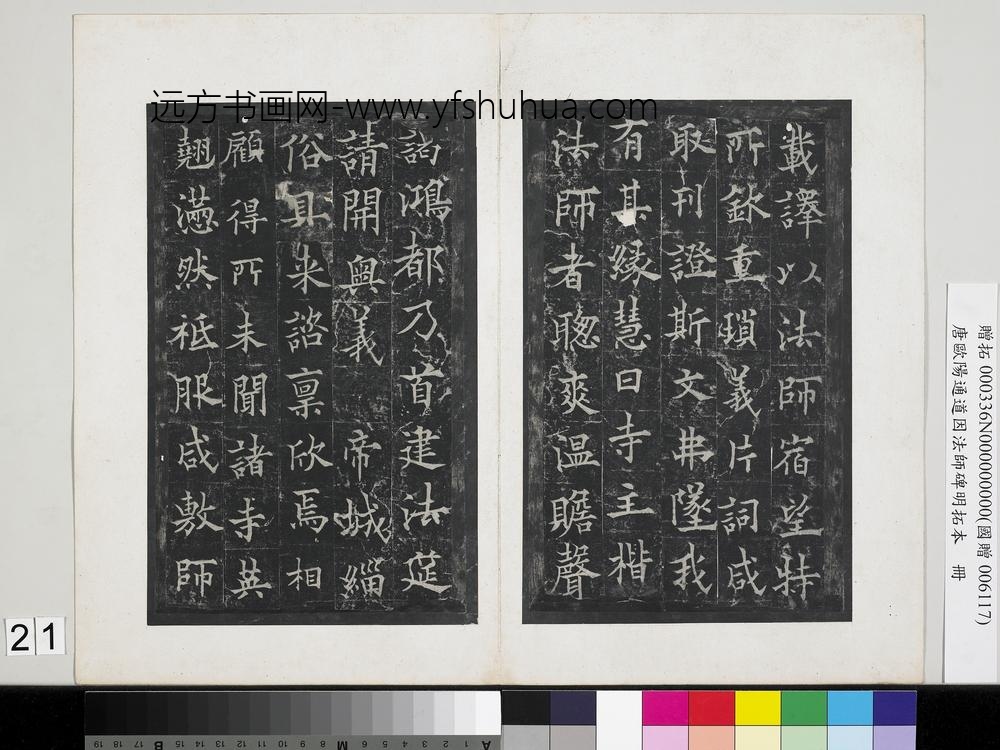 远方书画网-www.yfshuhua.com
載譯以法師宿望特
所欽重瑣義片詞咸
取刊證斯文弗墜我
有其緣慧日寺主楷
法師者聰爽温贍聲
諂鴻都乃首建法筵
請開奧義帝城緇
俗具来諮稟欣焉相
顧得所未聞諸寺英
翹懣然祗服咸敷師
贈拓 000336N000000000(國贈 006117)
唐歐陽通道因法師碑明拓本 冊
21
19 18 17 16 15 14 13 12 11 10 9 8 7 6 5 4 3 2 1
B M A